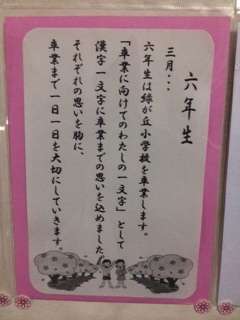 六年生
三月・・・
六年生は緑が丘小学校を卒業します。
「卒業に向けてのわたしの一文字」として
漢字一文字に卒業までの思いを込めました。
それぞれの思いを胸に、
卒業まで一日一日を大切にしていきます。